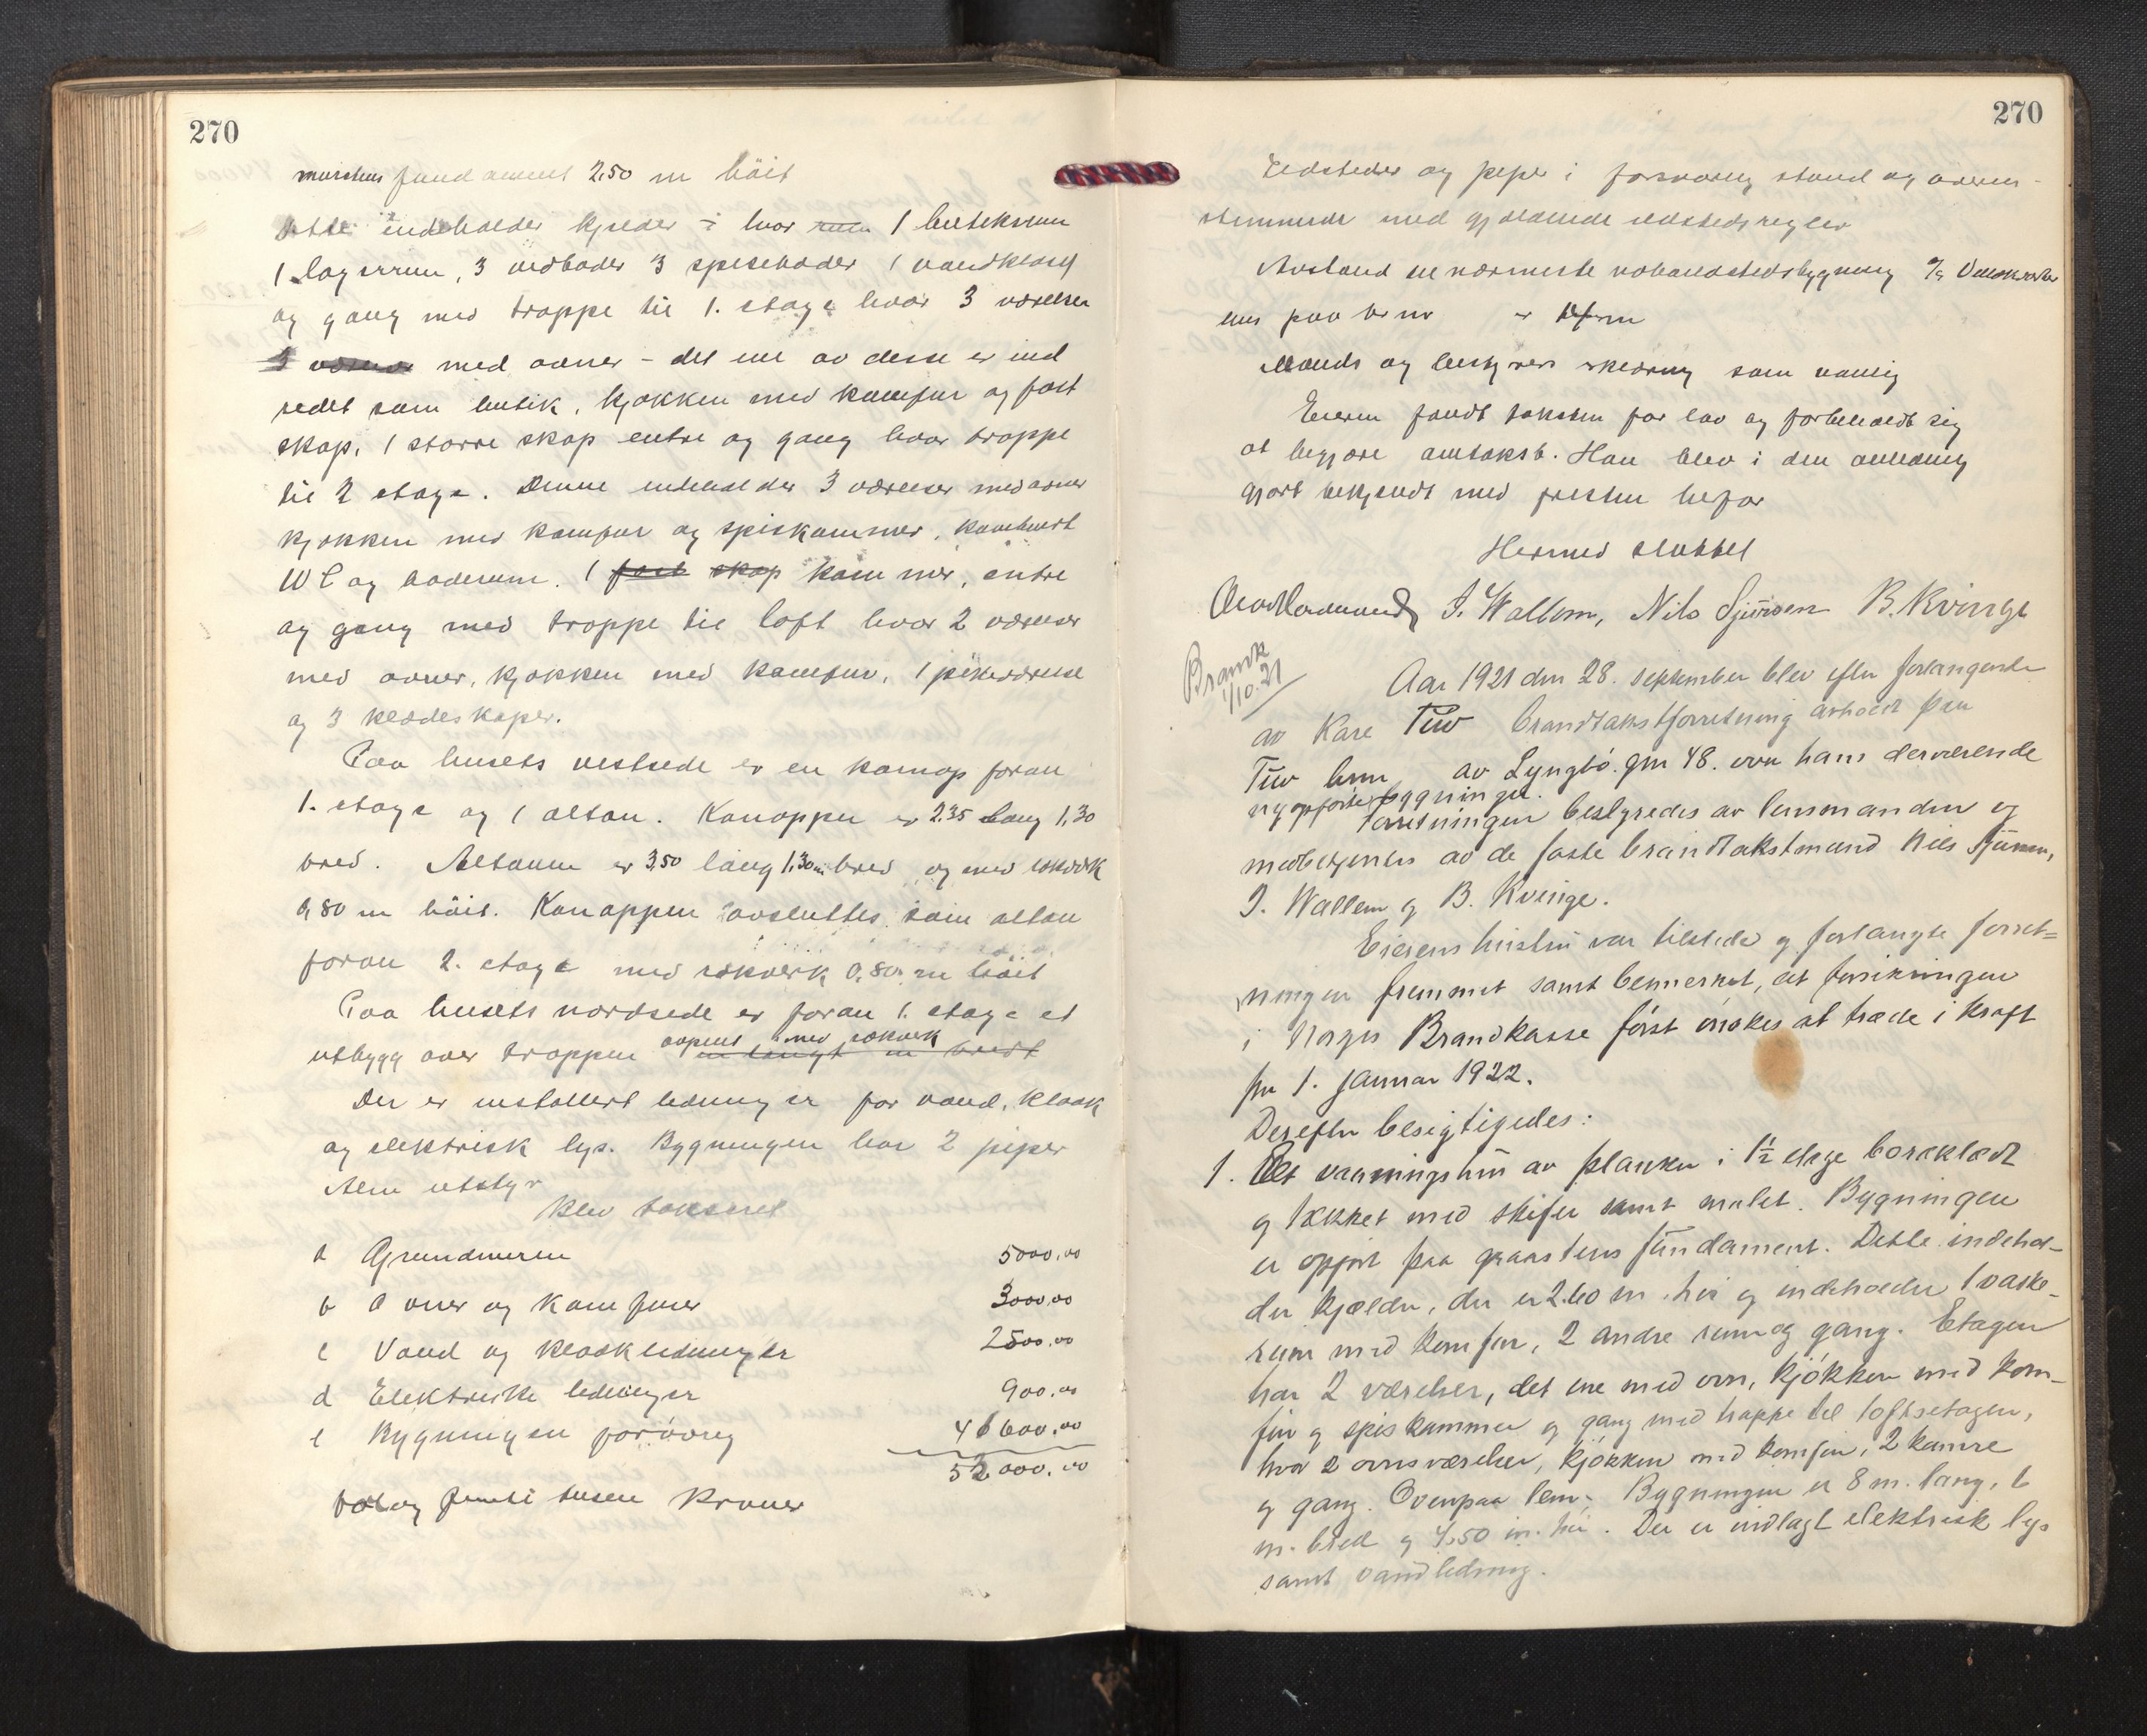 270
murstens fundament 2.50 m höit
Dette indeholder kjelder i hvor rum 1 butiksrum
1 lagerrum, 3 vedboder 3 speseboder 1 vandklosg
og gang med trappe til 1. etage hvor 3 værelser
3 med ovner - det ene av desse er ind
redet som butik, kjøkken med komfur og fast
skap, 1 større skap entre og gang hvor trappe
til 2 etage. Denne indeholder 3 værelser med ovner
kjøkken med komfur og spiskammer, kombinert
WC og baderum. 1 fast skap kammer, entre
og gang med trappe til loft hvor 2 værelser
med ovner, kjøkken med komfur, 1 pikeværelse
og 3 klædeskaper.
Paa husets vestsede er en karnap foran
1. etage og 1 altan. Karnappen er 2.35 lang 1.30
bred. Altanen er 3.50 lang 1.30 m bred og med rekverk
0,80 m höit. Karnappen avsluttes som altan
foran 2. etage med rekverk 0,80 m höit
Paa husets nordsede er foran 1. etage et
utbygg over trappen aapent med rekverk m langt m bredt
Der er installert ledninger for vand, kloak
og elektrisk lys. Bygningen har 2 piper
Alm utstyr
Blev taksert
a Grundmuren 5000.00
b Ovner og Komfurer 3000.00
c Vand og kloakledninger 2500.00
d Elektriske ledninger 900.00
e Bygningen forøvrig 600.00
52 000.00
to og femti tusen Kroner
270
Ildsteder og piper i forsvarlig stand og overens-
stemmende med gjældende ildstedsregler
Avstand til nærmeste nabobebygning
ens paa er m
Mands og bestyrers skedning som vanlig
Eieren fandt taksten for lav og forbeholdt sig
at begjære omtakst. Han blev i den anledning
gjort bekjendt med fristen herfor
Hermed sluttet
J. Wallem, Nils Sjursen B. Kvinge
Brandk
1/10.21
Aar 1921 den 28. september blev efter forlangende
av Kare Tuv brandtakstforretning avholdt paa
Tuv av Lyngbö gnr 48. over hans derværende
nyopførte bygninger.
Forretningen bestyredes av lensmanden og
medbetjentes av de faste brandtakstmænd Nils Sjursen,
J. Wallem og B. Kvinge.
Eierens hustru var tilstede og forlangte forret=
ningen fremmet samt bemerket, at forsikringen
i Norges Brandkasse først ønskes at træde i kraft
fra 1. januar 1922.
Derefter besigtigedes:
1. Et vaaningshus av planker i 1½ etage bordklædt
og tækket med skifer samt malet. Bygningen
er opført paa graastens fundament. Dette indehol-
der kjælder, der er 2.60 m. høi og indeholder 1 vaske-
rum med komfur, 2 andre rum og gang. Etagen
har 2 værelser, det ene med ovn, kjøkken med kom-
fur og spiskammer og gang med trappe til loftsetagen,
hvor 2 ovnsværelser, kjøkken med komfur, 2 kamre
og gang. Ovenpaa lem. Bygningen er 8 m. lang, 6
m. bred og 4.50 m. høi. Der er indlagt elektrisk lys
samt vandledning.